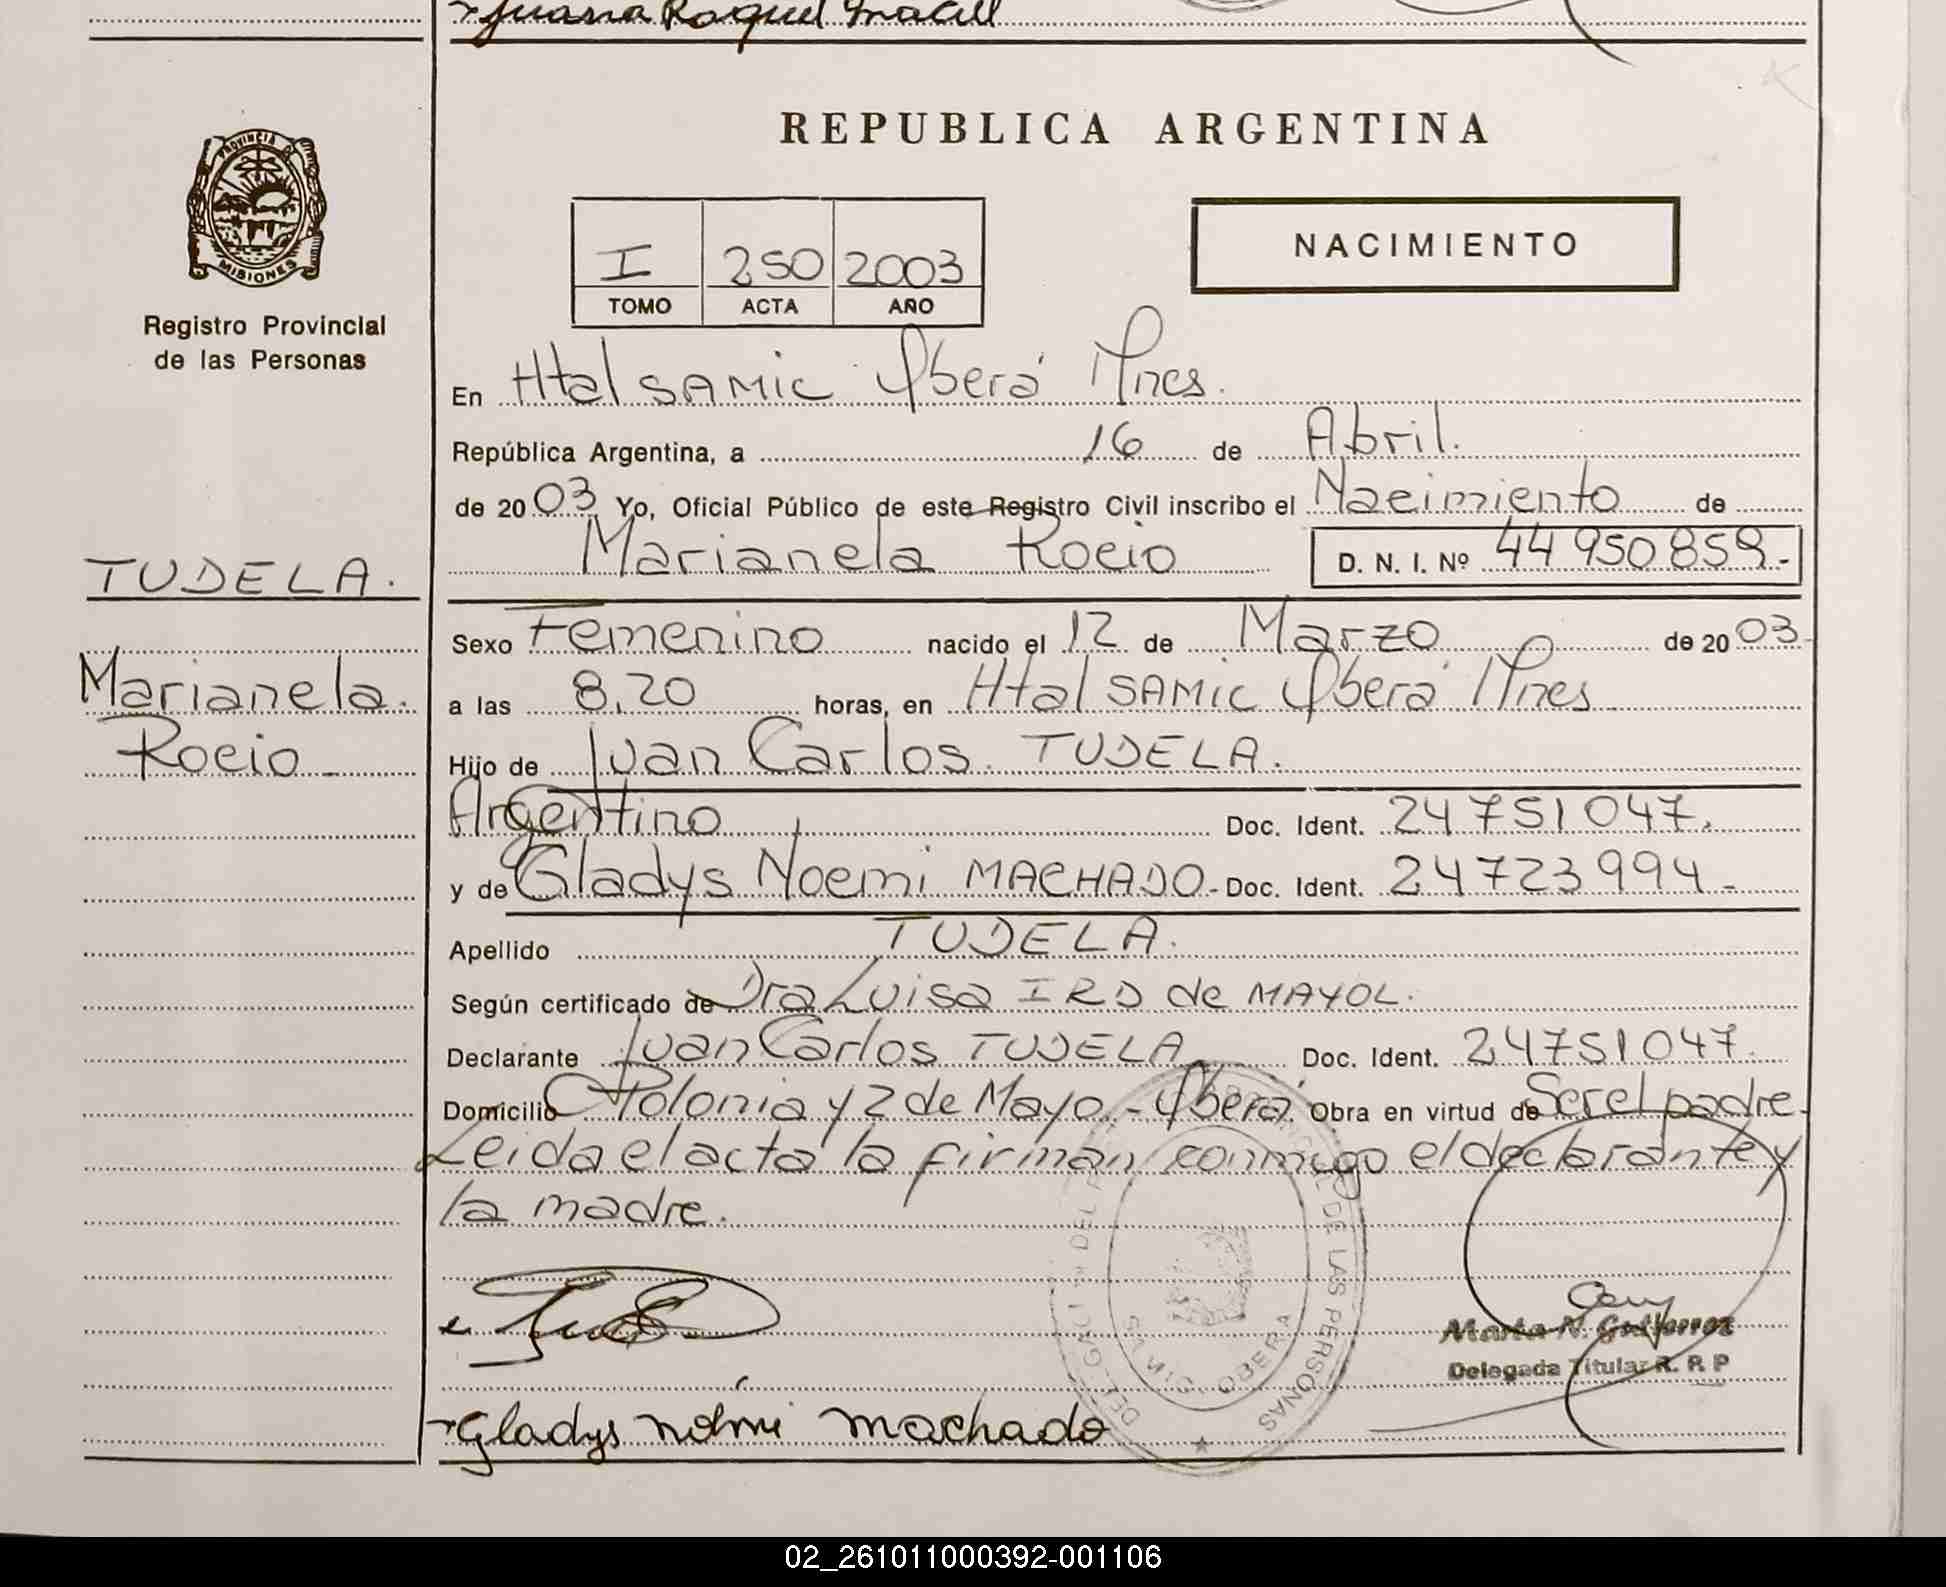 Juana Raquel
REPUBLICA ARGENTINA
PROVINCIA DE
MISIONES
Registro Provincial
de las Personas
I 250 2003
TOMO ACTA AÑO
NACIMIENTO
En Htal SAMIC Oberá Mnes.
República Argentina, a 16 de Abril.
de 2003 Yo, Oficial Público de este Registro Civil inscribo el Nacimiento de
Marianela Rocio D. N. I. Nº 44950859.-
TUDELA.
Marianela.
Rocio -
Sexo Femenino nacido el 12 de Marzo de 2003-
a las 8,20 horas, en Htal SAMIC Oberá Mnes
Hijo de Juan Carlos TUDELA.
Argentino Doc. Ident. 24751047.
y de Gladys Noemi MACHADO- Doc. Ident. 24723994-
Apellido TUDELA.
Según certificado de Dra Luisa IRD de MAYOL.
Declarante Juan Carlos TUDELA Doc. Ident. 24751047.
Domicilio C Polonia y 2 de Mayo - Oberá Obra en virtud de Ser el padre.
Leida el acta la firman conmigo el declarante y
la madre.
DE LAS PERSONAS
SAMIC. OBERA
Marta N. Gutierrez
Delegada Titular R. P. P
Gladys noémi machado
02_261011000392-001106